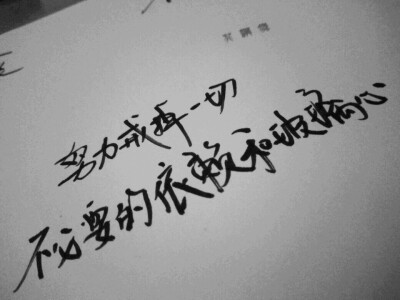 努力戒掉一切
不必要的依赖和玻璃心